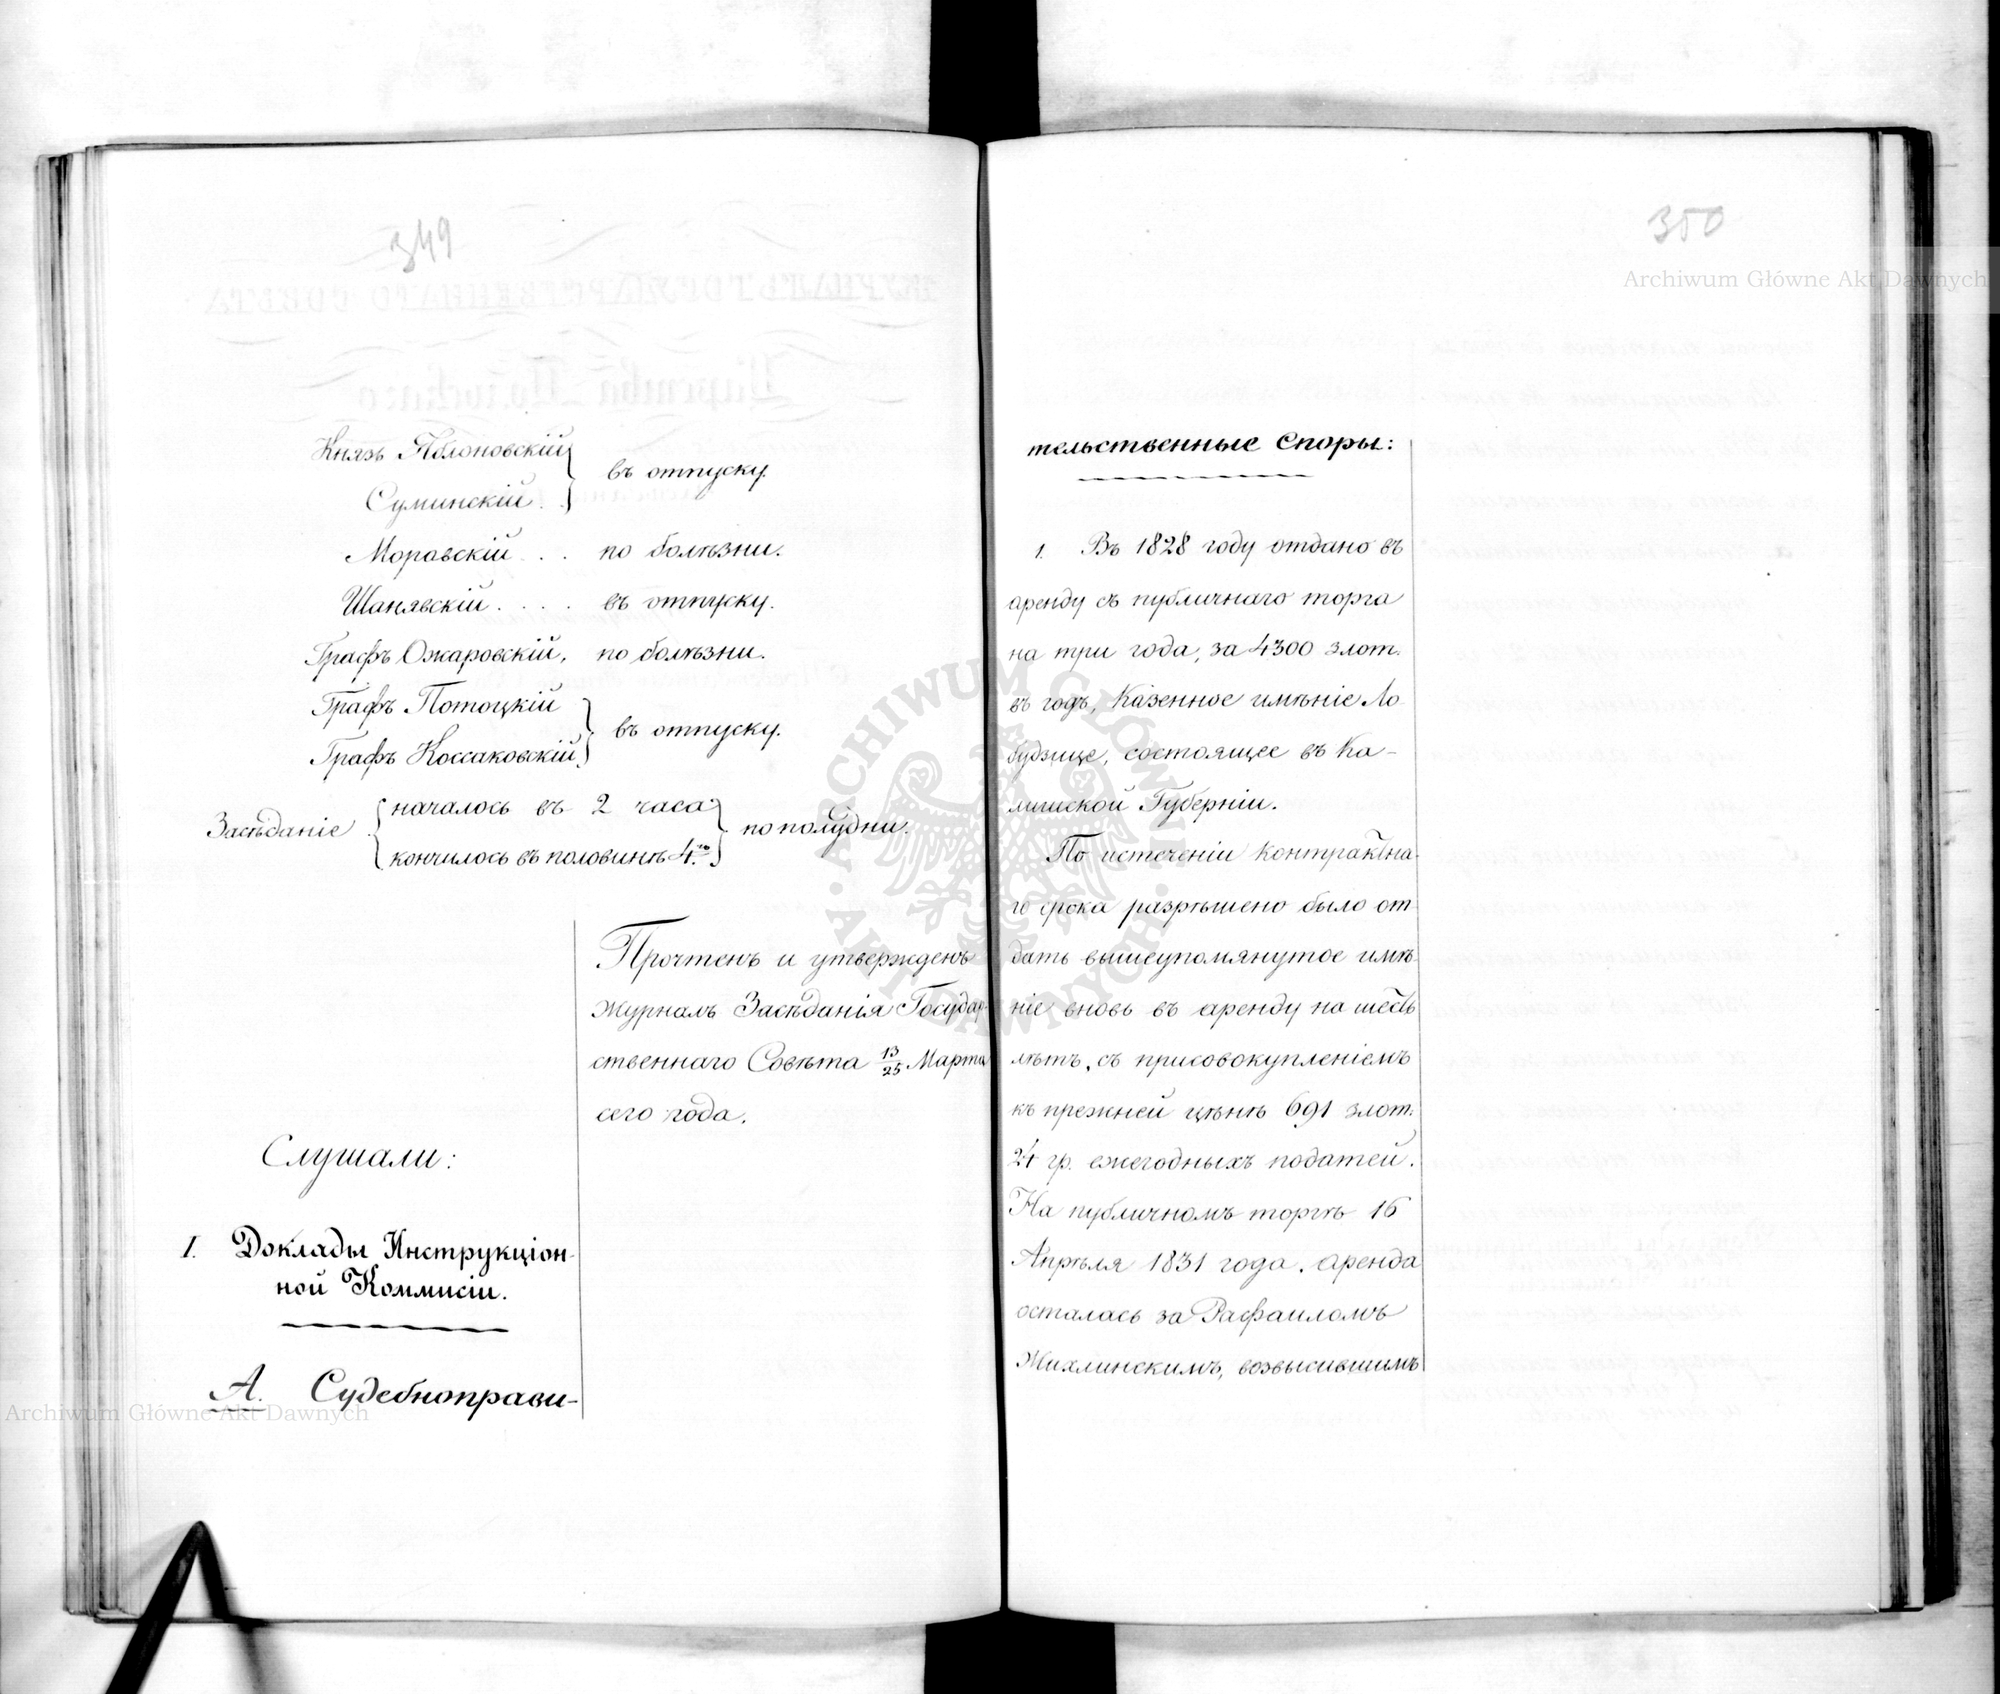 349
Князь Яблоновскій
Суминскій . . } въ отпуску.
Моравскій . . по болѣзни.
Шанявскій . . . . въ отпуску.
Графъ Ожаровскій, по болѣзни.
Графъ Потоцкій
Графъ Коссаковскій } въ отпуску.
Засѣданіе { началось въ 2 часа
кончилось въ половинѣ 4.го } по полудни.
Прочтенъ и утвержденъ
журналъ Засѣданія Государ-
ственнаго Совѣта 13/25 Марта
сего года.
Слушали:
I. Доклады Инструкціон-
ной Коммисіи.
А. Судебноправи-
350
тельственные Споры:
1. Въ 1828 году отдано въ
аренду съ публичнаго торга
на три года, за 4300 злот.
въ годъ, Казенное имѣніе Ло-
будзице, состоящее въ Ка-
лишской Губерніи.
По истеченіи контрактна-
го срока разрѣшено было от-
дать вышеупомянутое имѣ-
ніе вновь въ аренду на шесть
лѣтъ, съ присовокупленіемъ
къ прежней цѣнѣ 691 злот.
24 гр. ежегодныхъ податей.
На публичномъ торгѣ 16
Апрѣля 1831 года, аренда
осталась за Рафаиломъ
Жихлинскимъ, возвысившимъ
Archiwum Główne Akt Dawnych
Archiwum Główne Akt Dawnych
ARCHIWUM GŁÓWNE AKT DAWNYCH